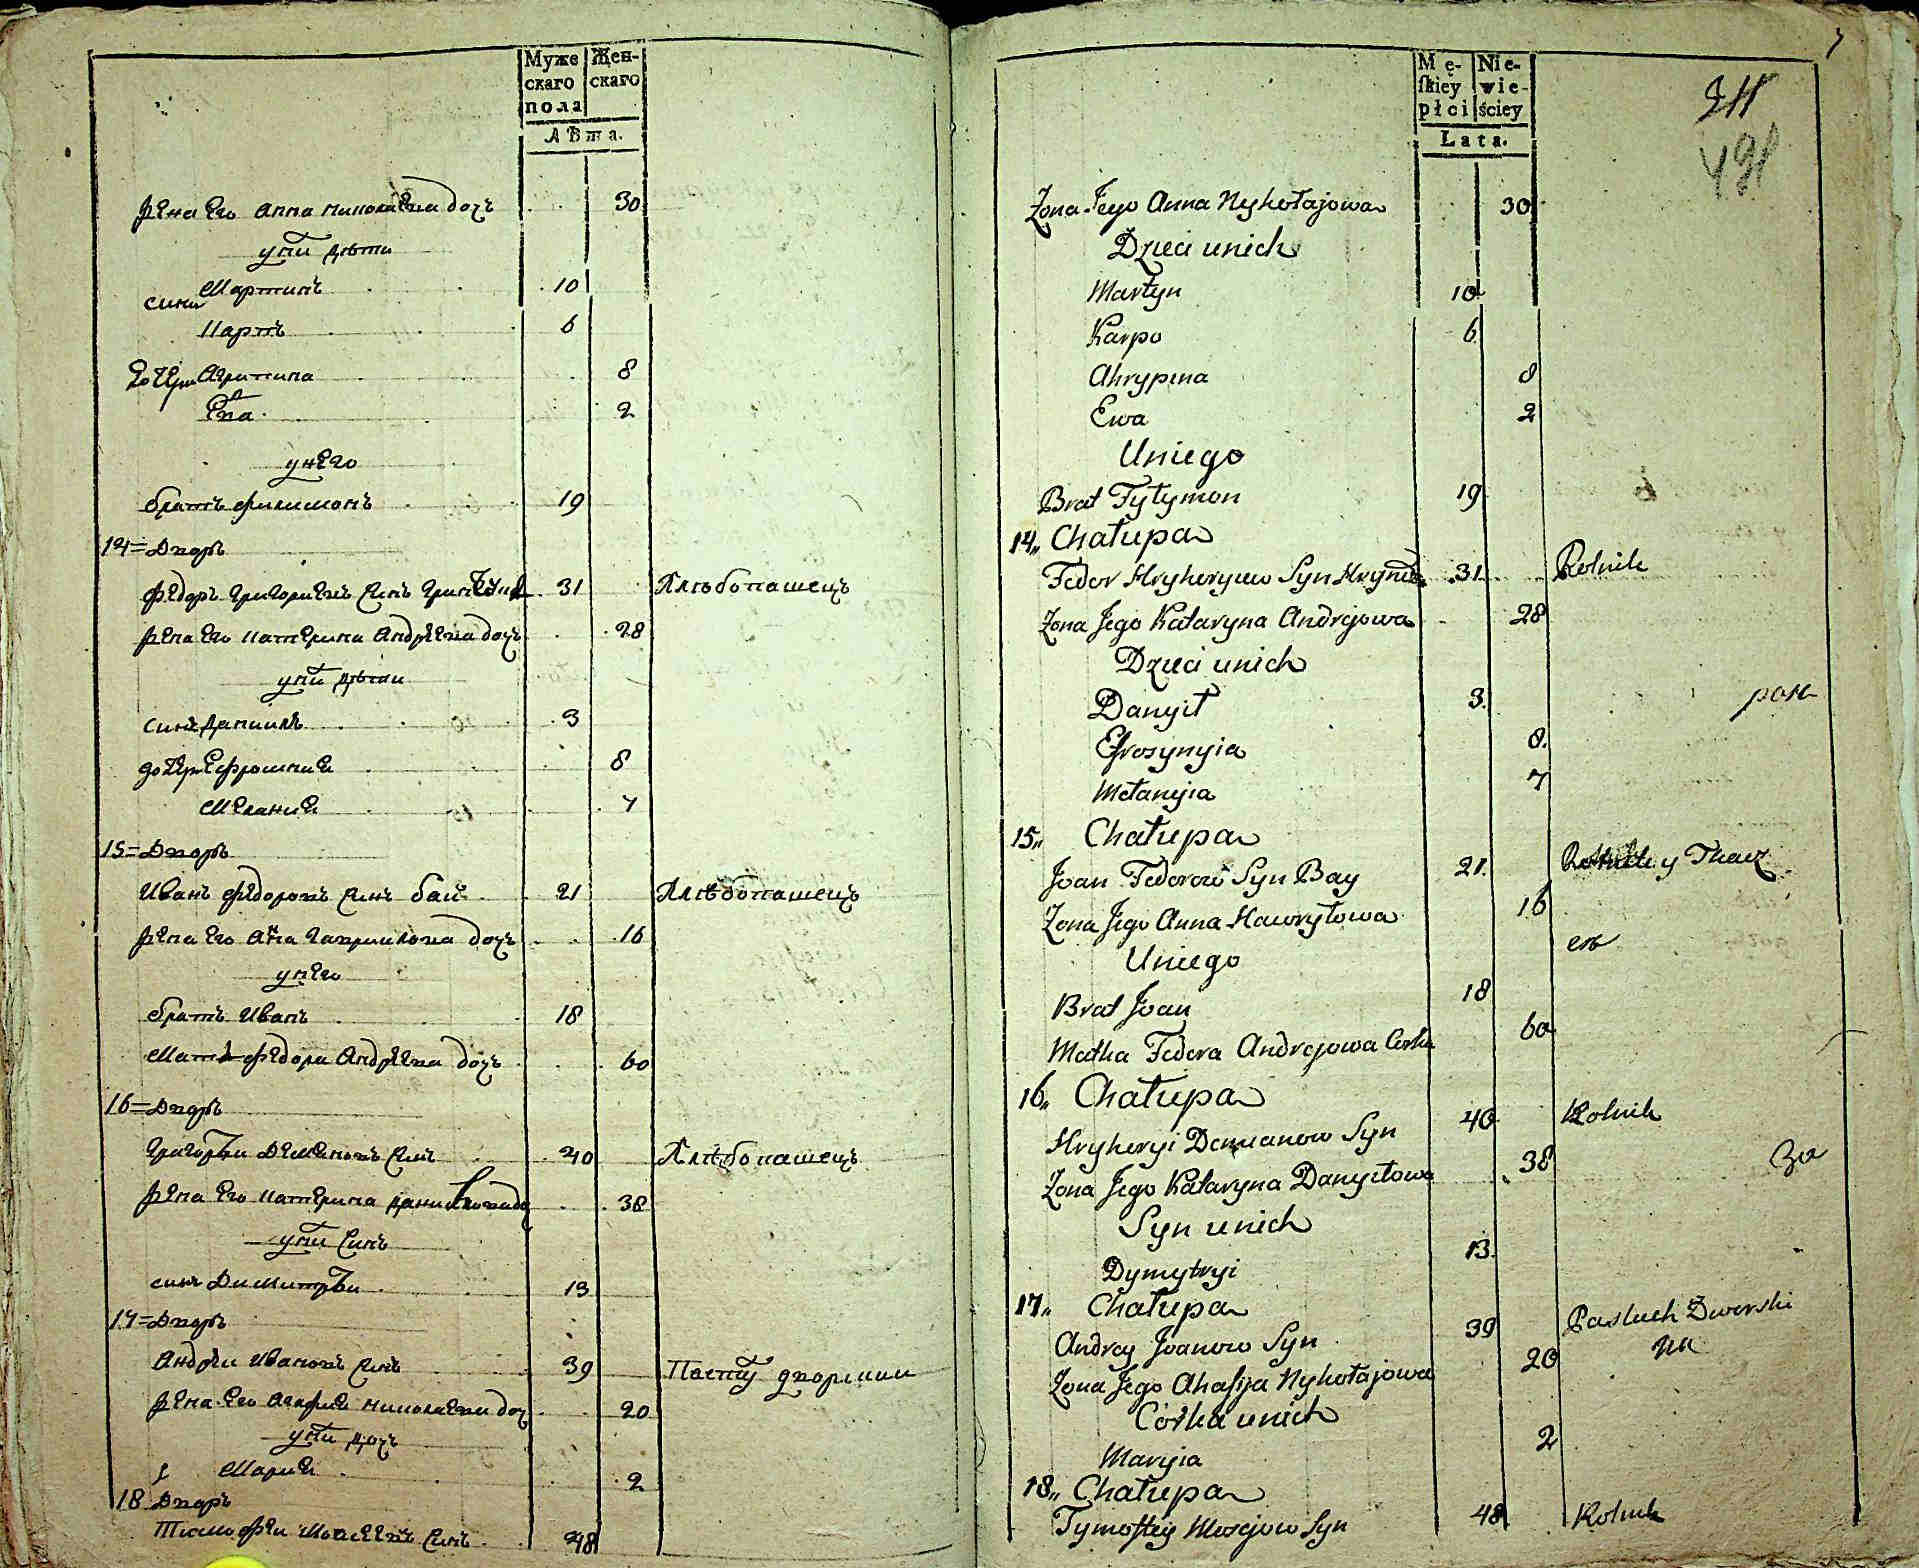 Муже скаго пола
Жен- скаго
лѣта.
жена его анна николаевна дочъ 30
у них дѣти
сини Мартинъ 10
Карпъ 6
дочери Агрипина 8
Ева 2
у него
братъ филимонъ 19
14=Дворъ
федоръ григориевъ синъ 31 Хлѣбопашецъ
жена его катерина Андреева дочъ 28
у них дѣти
синъ Даниилъ 3
дочери Ефросиния 8
Мелания 7
15=Дворъ
Иванъ федоровъ синъ бай 21 Хлѣбопашецъ
жена его Анна гаврилова дочъ 16
у него
братъ Иванъ 18
Мать федора Андреева дочъ 60
16=Дворъ
Григорѣй Деменовъ синъ 40 Хлѣбопашецъ
жена его катерина данилова до 38
у них синъ
синъ Димитрѣй 13
17=Дворъ
Андрѣй Ивановъ синъ 39 Пастух дворский
жена его Агафия николаевна доч 20
у них дочъ
Мария 2
18 Дворъ
Тимофей Мосеевъ синъ 48
Mę- ſkiey płci
Nie- wie- ściey
Lata.
211
491
Zona Jego Anna Nykołajowa 30
Dzieci unich
Martyn 10
Karpo 6
Ahrypina 8
Ewa 2
Uniego
Brat Fyłymon 19
14,, Chałupa
Fedor Hryheryiew Syn 31 Rolnik
Zona Jego Kataryna Andrejowa 28
Dzieci unich
Danyił 3
Efrosynyia 8
Mełanyia 7
15,, Chałupa
Joan Fedorow Syn Bay 21 Rolnik y Tkacz
Zona Jego Anna Hawryłowa 16
Uniego
Brat Joan 18
Matka Fedora Andrejowa Corka 60
16,, Chałupa
Hryheryi Demianow Syn 40 Rolnik
Zona Jego Kataryna Danyiłowa 38
Syn unich
Dymytryi 13
17,, Chałupa
Andrey Joanow Syn 39 Pastuch Dworski
Zona Jego Ahafija Nykołajowa 20
Córka unich
Maryia 2
18,, Chałupa
Tymoftey Mosejow Syn 48 Rolnik